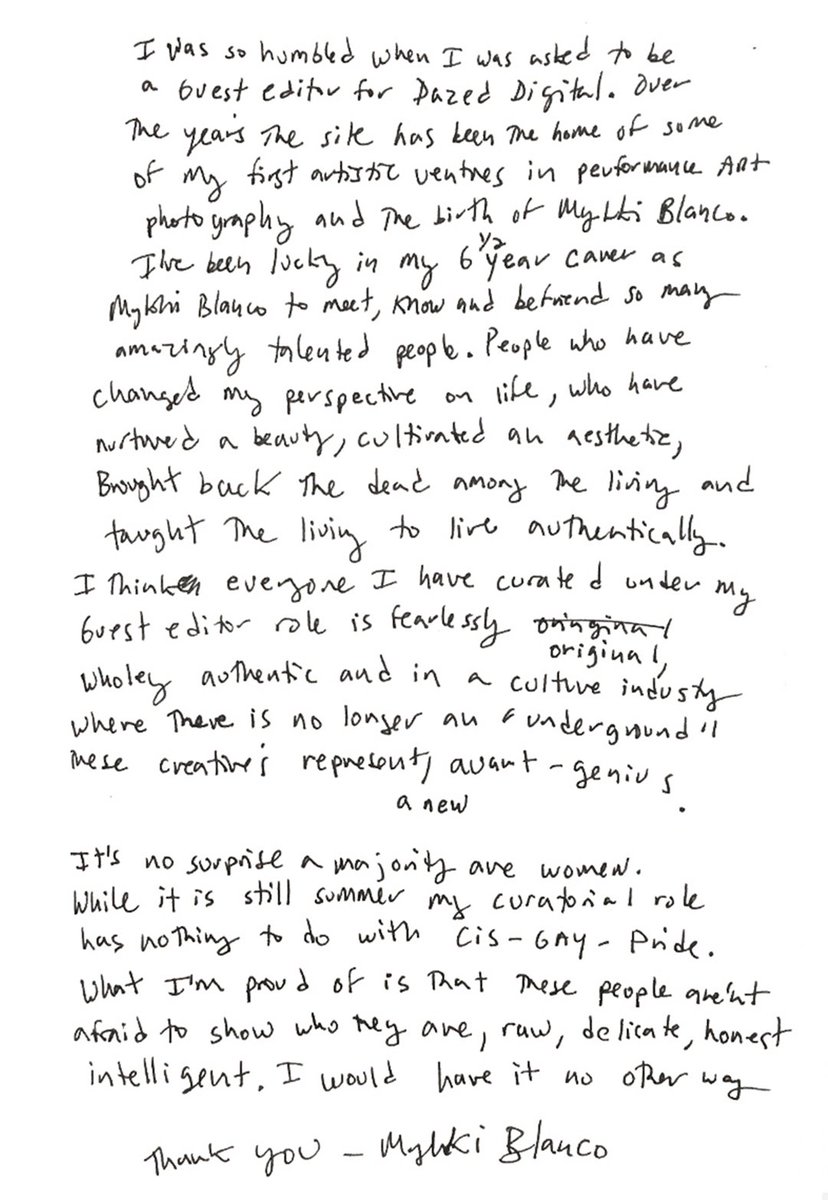 I was so humbled when I was asked to be
a Guest editor for Dazed Digital. Over
The years The site has been The home of some
of my first artistic ventres in performance ART
photography and The birth of Mykki Blanco.
I've been lucky in my 6 1/2 year career as
Mykki Blanco to meet, know and befriend so many
amazingly talented people. People who have
changed my perspective on life, who have
nurtured a beauty, cultivated an aesthetic,
Brought back The dead among The living and
taught The living to live authentically.
I Think everyone I have curated under my
Guest editor role is fearlessly oringinal
original,
wholey authentic and in a culture industy
where There is no longer an "underground"
These creative's represent, avant-genius
a new .
It's no surprise a majority are women.
While it is still summer my curatorial role
has nothing to do with Cis-GAY-Pride.
What I'm proud of is That These people aren't
afraid to show who they are, raw, delicate, honest
intelligent. I would have it no other way
Thank you - Mykki Blanco